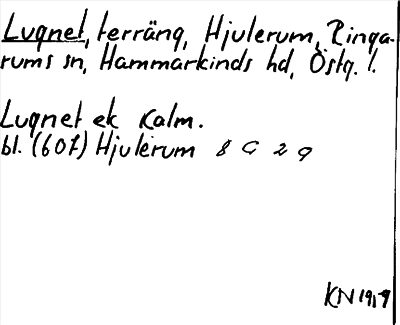 Lugnet, terräng, Hjulerum, Ringa-
rums sn, Hammarkinds hd, Östg. l.
Lugnet ek Kalm.
bl. (607) Hjulerum 8 G 2 g